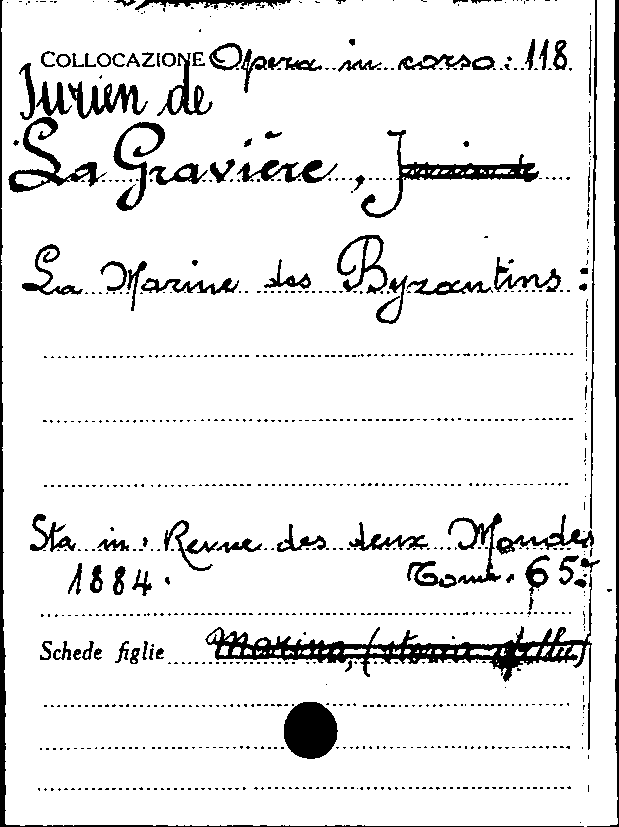 COLLOCAZIONE Opera in corso: 118
Jurien de
La Gravière, Jurien de
La Marine des Byzantins:
Sta in: Revue des deux Mondes
1884. Tom. 65:
Schede figlie Marina, (storia della)